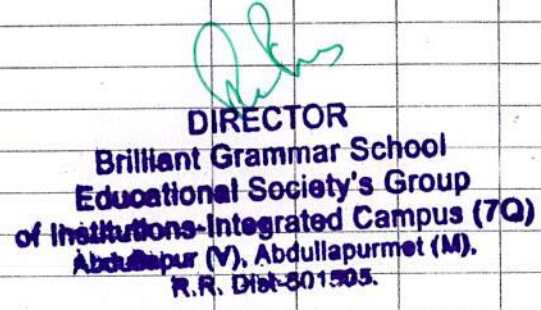 DIRECTOR
Brilliant Grammar School
Educational Society's Group
of Institutions-Integrated Campus (7Q)
Abdullapur (V), Abdullapurmet (M).
R.R. Dist-501505.